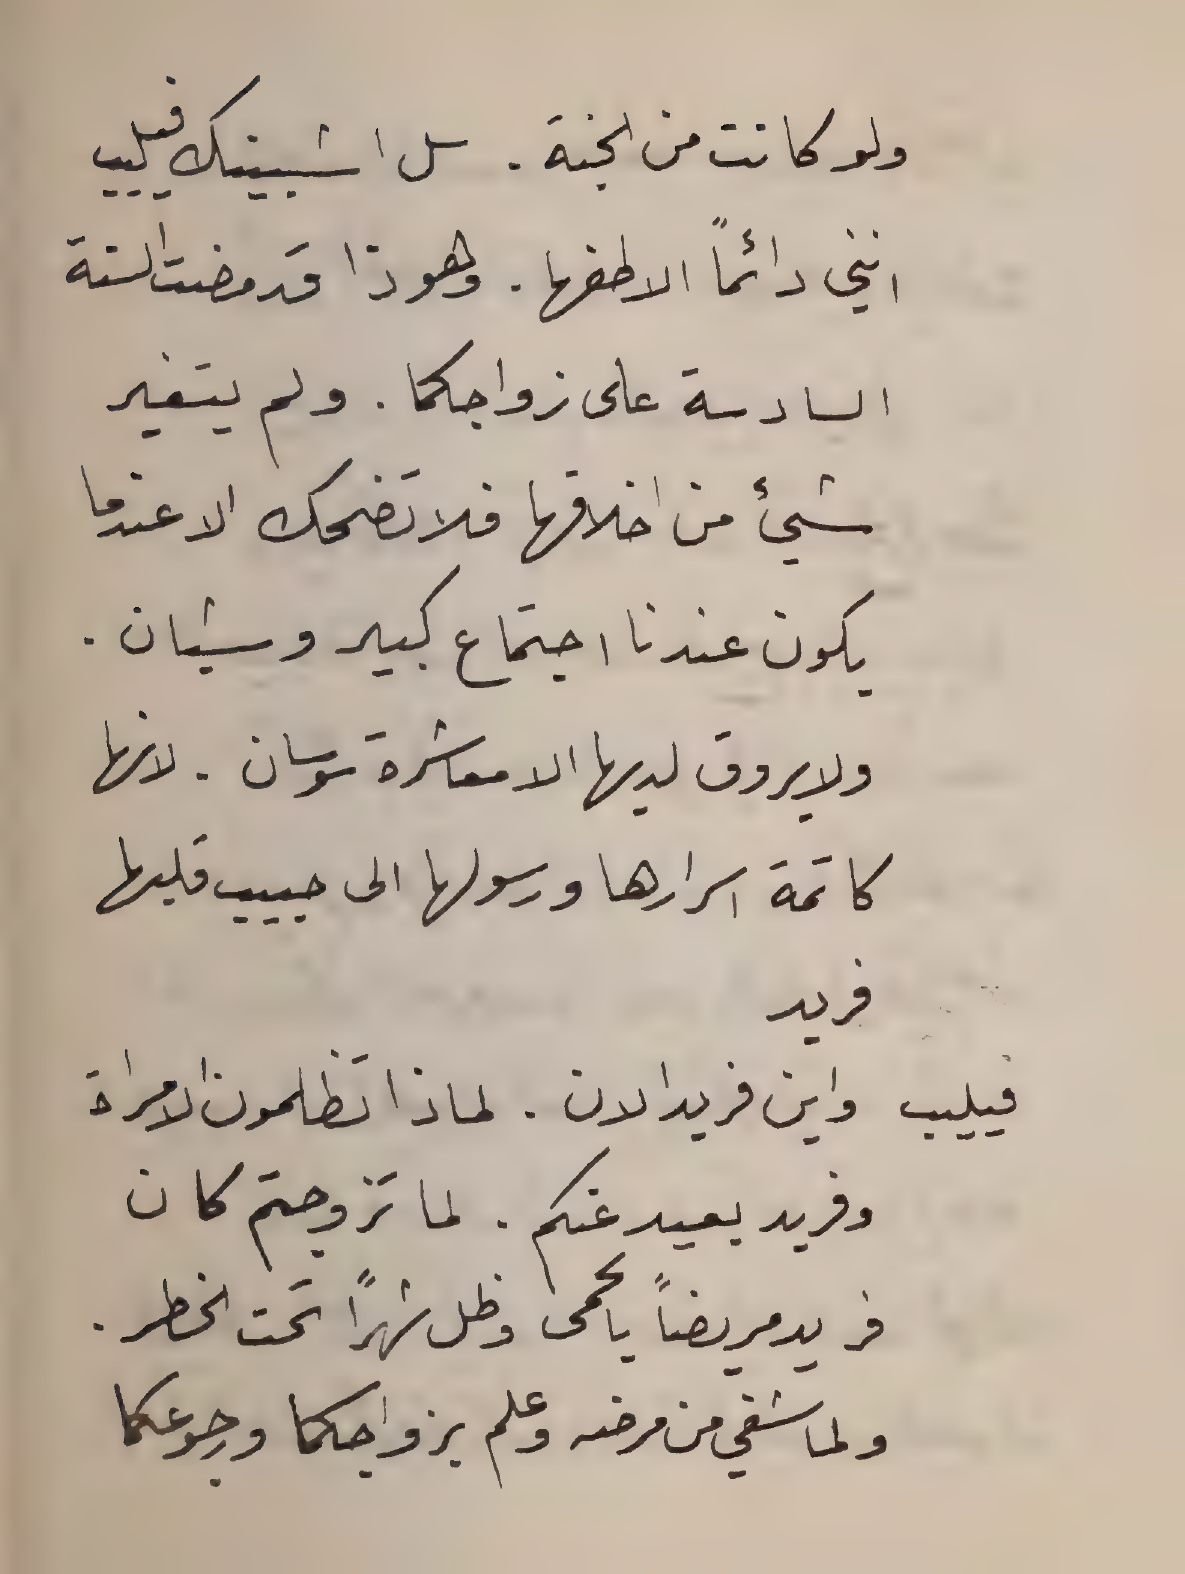 ولو كانت من الجنة . سل اشبينك فيليب
انني دائماً الاطفها . وهوذا قد مضت السنة
السادسة على زواجكما . ولم يتغير
شيئ من اخلاقها فلا تضحك الا عندما
يكون عندنا اجتماع كبير وشبان .
ولا يروق لديها الا معاشرة سوسان . لانها
كاتمة اسرارها ورسولها الى حبيب قلبها
فريد
فيليب واين فريد الان . لماذا تظلمون الامراة
وفريد بعيد عنكم . لما تزوجتم كان
فريد مريضاً بالحمى وظل شهراً تحت الخطر .
ولما شفي من مرضه وعلم بزواجكما ورجوعكما